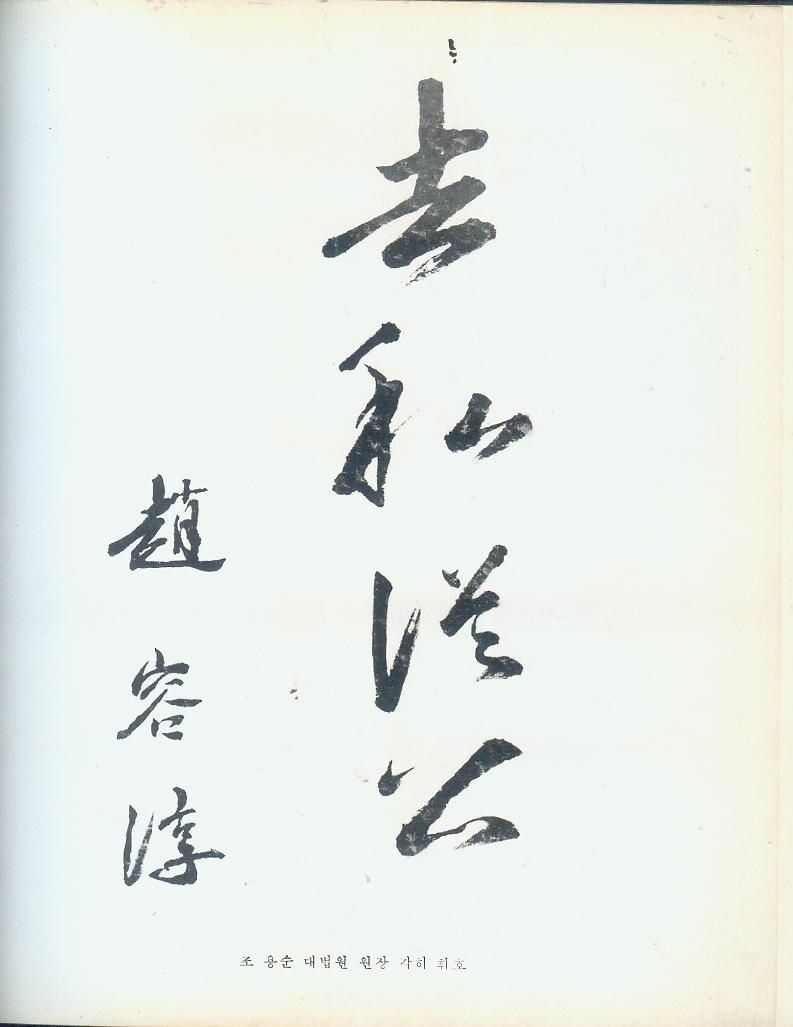 去私從公
趙容淳
조 용순 대법원 원장 각하 휘호